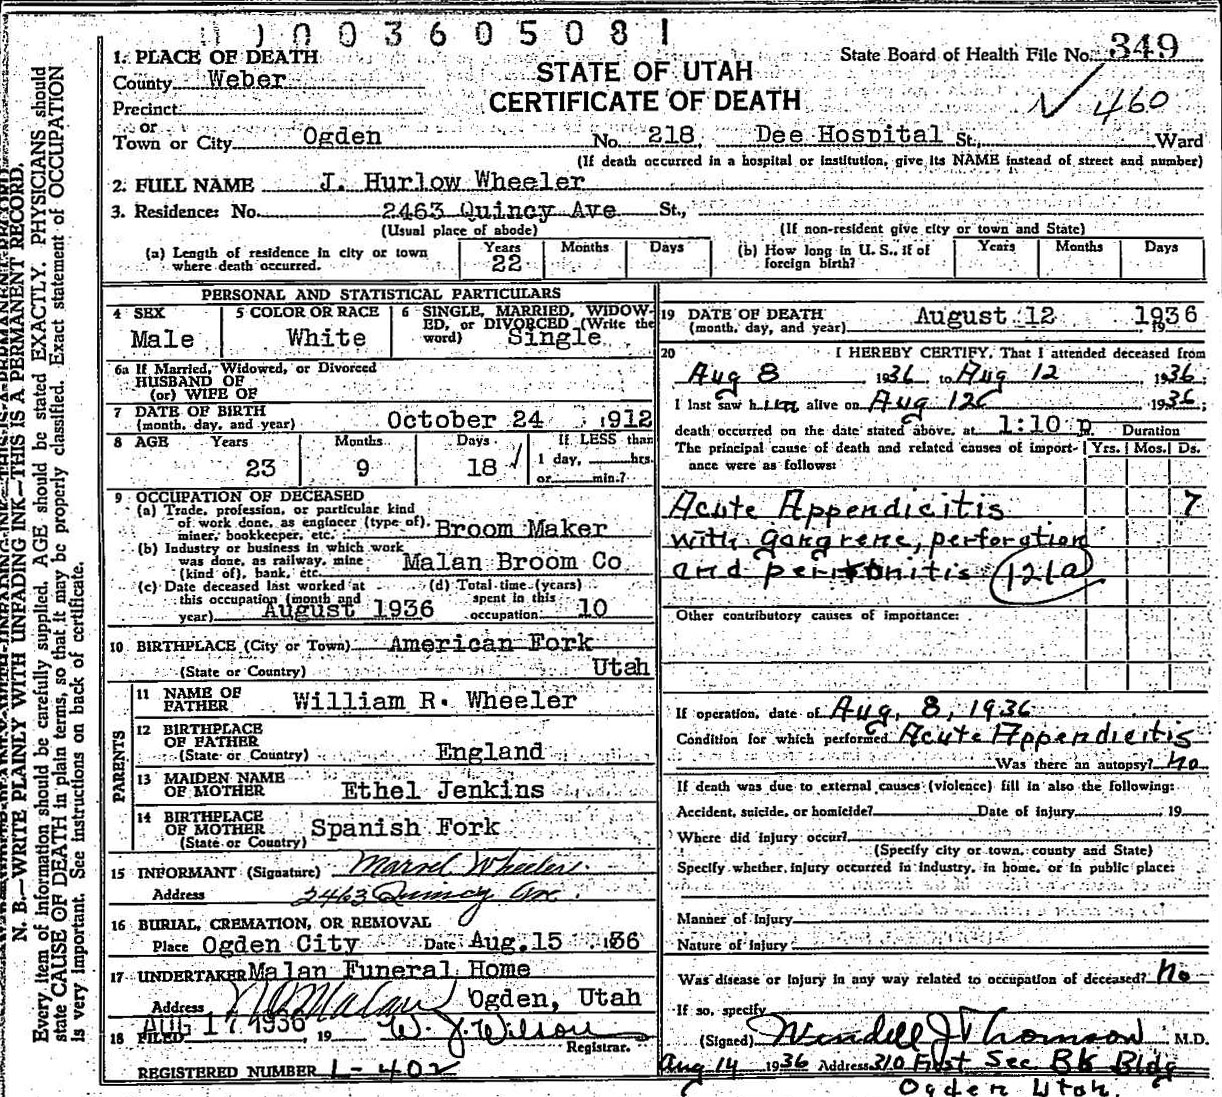 0003605081
1. PLACE OF DEATH
State Board of Health File No. 349
County Weber
STATE OF UTAH
Precinct
CERTIFICATE OF DEATH
✓ 460
or
Town or City Ogden No. 218, Dee Hospital St., Ward
(If death occurred in a hospital or institution, give its NAME instead of street and number)
2. FULL NAME J. Hurlow Wheeler
3. Residence: No. 2463 Quincy Ave St.,
(Usual place of abode) (If non-resident give city or town and State)
(a) Length of residence in city or town where death occurred. Years 22 Months Days
(b) How long in U. S., if of foreign birth? Years Months Days
PERSONAL AND STATISTICAL PARTICULARS
4 SEX Male
5 COLOR OR RACE White
6 SINGLE, MARRIED, WIDOW-
ED, or DIVORCED (Write the
word) Single
6a If Married, Widowed, or Divorced
HUSBAND OF
(or) WIFE OF
7 DATE OF BIRTH
(month, day, and year) October 24 1912
8 AGE Years Months Days If LESS than
23 9 18 ✓ 1 day, hrs.
or min.?
9 OCCUPATION OF DECEASED
(a) Trade, profession, or particular kind
of work done, as engineer (type of),
miner, bookkeeper, etc. Broom Maker
(b) Industry or business in which work
was done, as railway, mine
(kind of), bank, etc. Malan Broom Co
(c) Date deceased last worked at
this occupation (month and
year) August 1936
(d) Total time (years)
spent in this
occupation 10
10 BIRTHPLACE (City or Town) American Fork
(State or Country) Utah
PARENTS
11 NAME OF
FATHER William R. Wheeler
12 BIRTHPLACE
OF FATHER
(State or Country) England
13 MAIDEN NAME
OF MOTHER Ethel Jenkins
14 BIRTHPLACE
OF MOTHER Spanish Fork
(State or Country)
15 INFORMANT (Signature) Marvel Wheeler
Address 2463 Quincy Ave.
16 BURIAL, CREMATION, OR REMOVAL
Place Ogden City Date Aug. 15 1936
17 UNDERTAKER Malan Funeral Home
Address Ogden, Utah
18 FILED AUG 17 1936, 19 W. J. Wilson
Registrar.
REGISTERED NUMBER L-402
19 DATE OF DEATH
(month, day, and year) August 12 1936
20 I HEREBY CERTIFY, That I attended deceased from
Aug 8 1936, to Aug 12 1936;
I last saw him alive on Aug 12 1936;
death occurred on the date stated above, at 1:10 p Duration
The principal cause of death and related causes of import-
ance were as follows: Yrs. Mos. Ds.
Acute Appendicitis 7
with gangrene, perforation
and peritonitis 121a
Other contributory causes of importance:
If operation, date of Aug. 8, 1936
Condition for which performed Acute Appendicitis
Was there an autopsy? no
If death was due to external causes (violence) fill in also the following:
Accident, suicide, or homicide? Date of injury 19
Where did injury occur?
(Specify city or town, county and State)
Specify whether injury occurred in industry, in home, or in public place:
Manner of Injury
Nature of injury
Was disease or injury in any way related to occupation of deceased? No
If so, specify
(Signed) Wendell J Thomson M.D.
Aug 14 1936 Address 310 First Sec Bk Bldg
Ogden Utah.
N. B.—WRITE PLAINLY WITH UNFADING INK—THIS IS A PERMANENT RECORD.
Every item of information should be carefully supplied. AGE should be stated EXACTLY. PHYSICIANS should
state CAUSE OF DEATH in plain terms, so that it may be properly classified. Exact statement of OCCUPATION
is very important. See instructions on back of certificate.